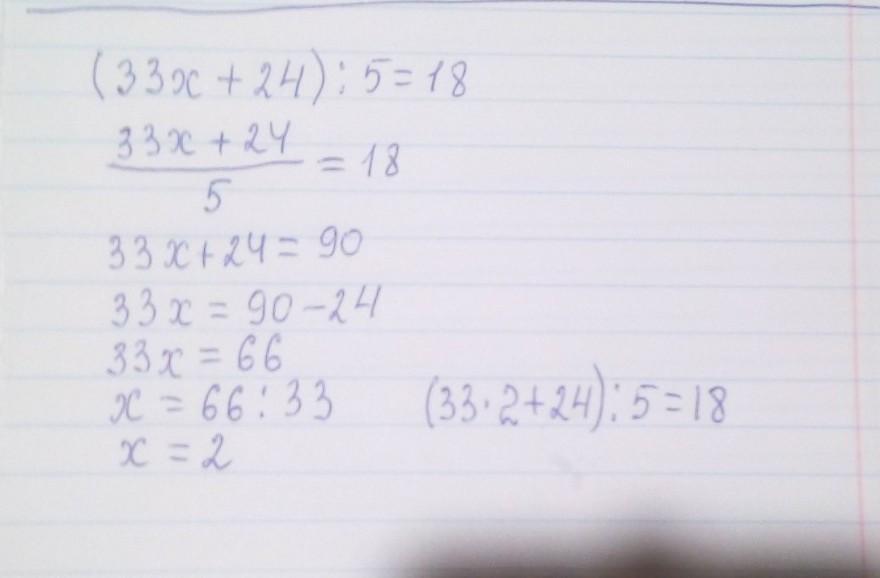 (33x + 24) : 5 = 18
33x + 24
5
= 18
33x + 24 = 90
33x = 90 - 24
33x = 66
x = 66 : 33
(33 · 2 + 24) : 5 = 18
x = 2